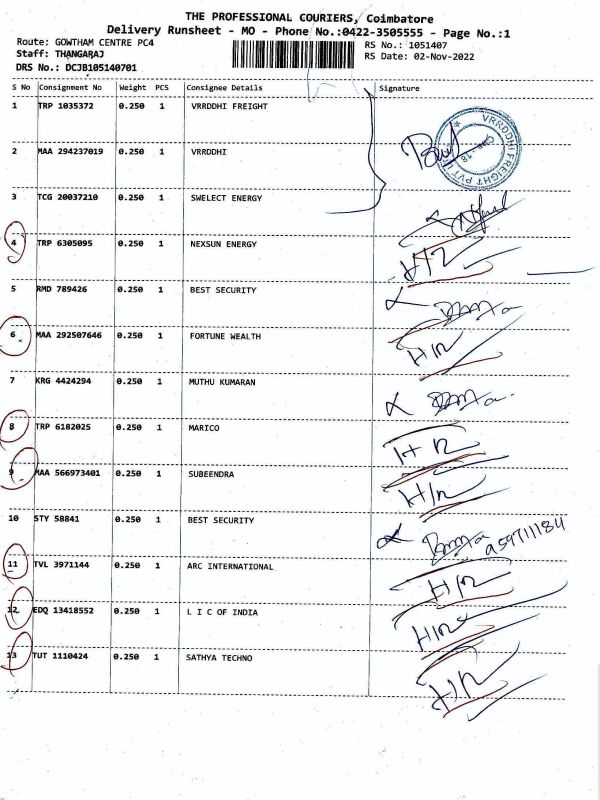 THE PROFESSIONAL COURIERS, Coimbatore
Delivery Runsheet - MO - Phone No.:0422-3505555 - Page No.:1
Route: GOWTHAM CENTRE PC4
RS No.: 1051407
Staff: THANGARAJ
RS Date: 02-Nov-2022
DRS No.: DCJB105140701
S No Consignment No Weight PCS Consignee Details Signature
1 TRP 1035372 0.250 1 VRRDDHI FREIGHT
VRRDDHI FREIGHT PVT
2 MAA 294237019 0.250 1 VRRDDHI
3 TCG 20037210 0.250 1 SWELECT ENERGY
4 TRP 6305095 0.250 1 NEXSUN ENERGY H/R
5 RMD 789426 0.250 1 BEST SECURITY
6 MAA 292507646 0.250 1 FORTUNE WEALTH H/R
7 KRG 4424294 0.250 1 MUTHU KUMARAN
8 TRP 6182025 0.250 1 MARICO H R
9 MAA 566973401 0.250 1 SUBEENDRA H/R
10 STY 58841 0.250 1 BEST SECURITY
11 TVL 3971144 0.250 1 ARC INTERNATIONAL H/R
12 EDQ 13418552 0.250 1 L I C OF INDIA H/R
13 TUT 1110424 0.250 1 SATHYA TECHNO H/R